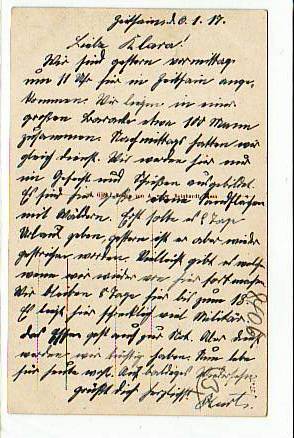 Zeithain, d. 6.1.17.
Liebe Klara!
Wir sind gestern vormittag
um 11 Uhr hier in Zeithain ange-
kommen. Wir liegen in einer
großen Baracke etwa 100 Mann
zusammen. Nachmittags hatten wir
gleich Dienst. Wir werden hier nur
im Gefecht und Schießen ausgebildet.
Es sind hier
mit Wäldern. Erst sollte es 8 Tage
Urlaub geben, gestern ist er aber wieder
gestrichen worden. Vielleicht gibt es welchen
wenn wir wieder von hier fort machen.
Wir bleiben 8 Tage hier bis zum 13.
Es liegt hier schrecklich viel Militär.
Das Essen geht auf zur Not. Aber Durst
werden wir tüchtig haben. Nun lebe
für heute wohl. Auf baldiges Wiedersehen
grüßt dich herzlichst
Kurt.